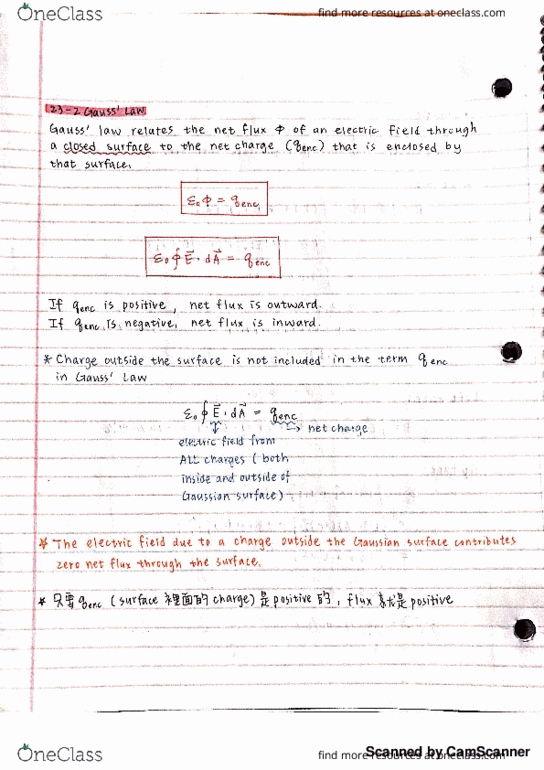 OneClass
find more resources at oneclass.com
23-2 Gauss' Law
Gauss' law relates the net flux Φ of an electric field through
a closed surface to the net charge (qenc) that is enclosed by
that surface.
ε₀Φ = qenc
ε₀∮E⃗·dA⃗ = qenc
If qenc is positive, net flux is outward.
If qenc is negative, net flux is inward.
* Charge outside the surface is not included in the term qenc
in Gauss' Law
ε₀∮E⃗·dA⃗ = qenc
→ net charge
electric field from
ALL charges (both
inside and outside of
Gaussian surface)
* The electric field due to a charge outside the Gaussian surface contributes
zero net flux through the surface.
* 只要 qenc (surface 裡面的 charge) 是 positive 的, flux 就是 positive
OneClass
find more resources at oneclass.com
Scanned by CamScanner